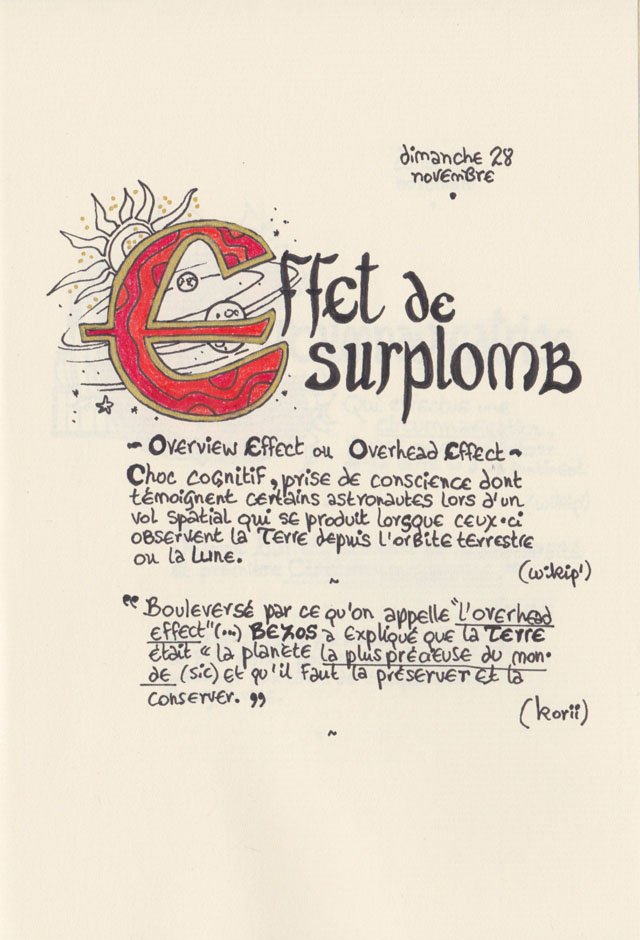 dimanche 28
novembre
Effet de
surplomb
~ Overview Effect ou Overhead Effect ~
Choc cognitif, prise de conscience dont
témoignent certains astronautes lors d'un
vol spatial qui se produit lorsque ceux-ci
observent la Terre depuis l'orbite terrestre
ou la Lune.
(wikip')
~
“ Bouleversé par ce qu'on appelle "l'overhead
effect" (...) BEZOS a expliqué que la Terre
était « la planète la plus précieuse du mon-
de (sic) et qu'il faut la préserver et la
conserver. ”
(korii)
~